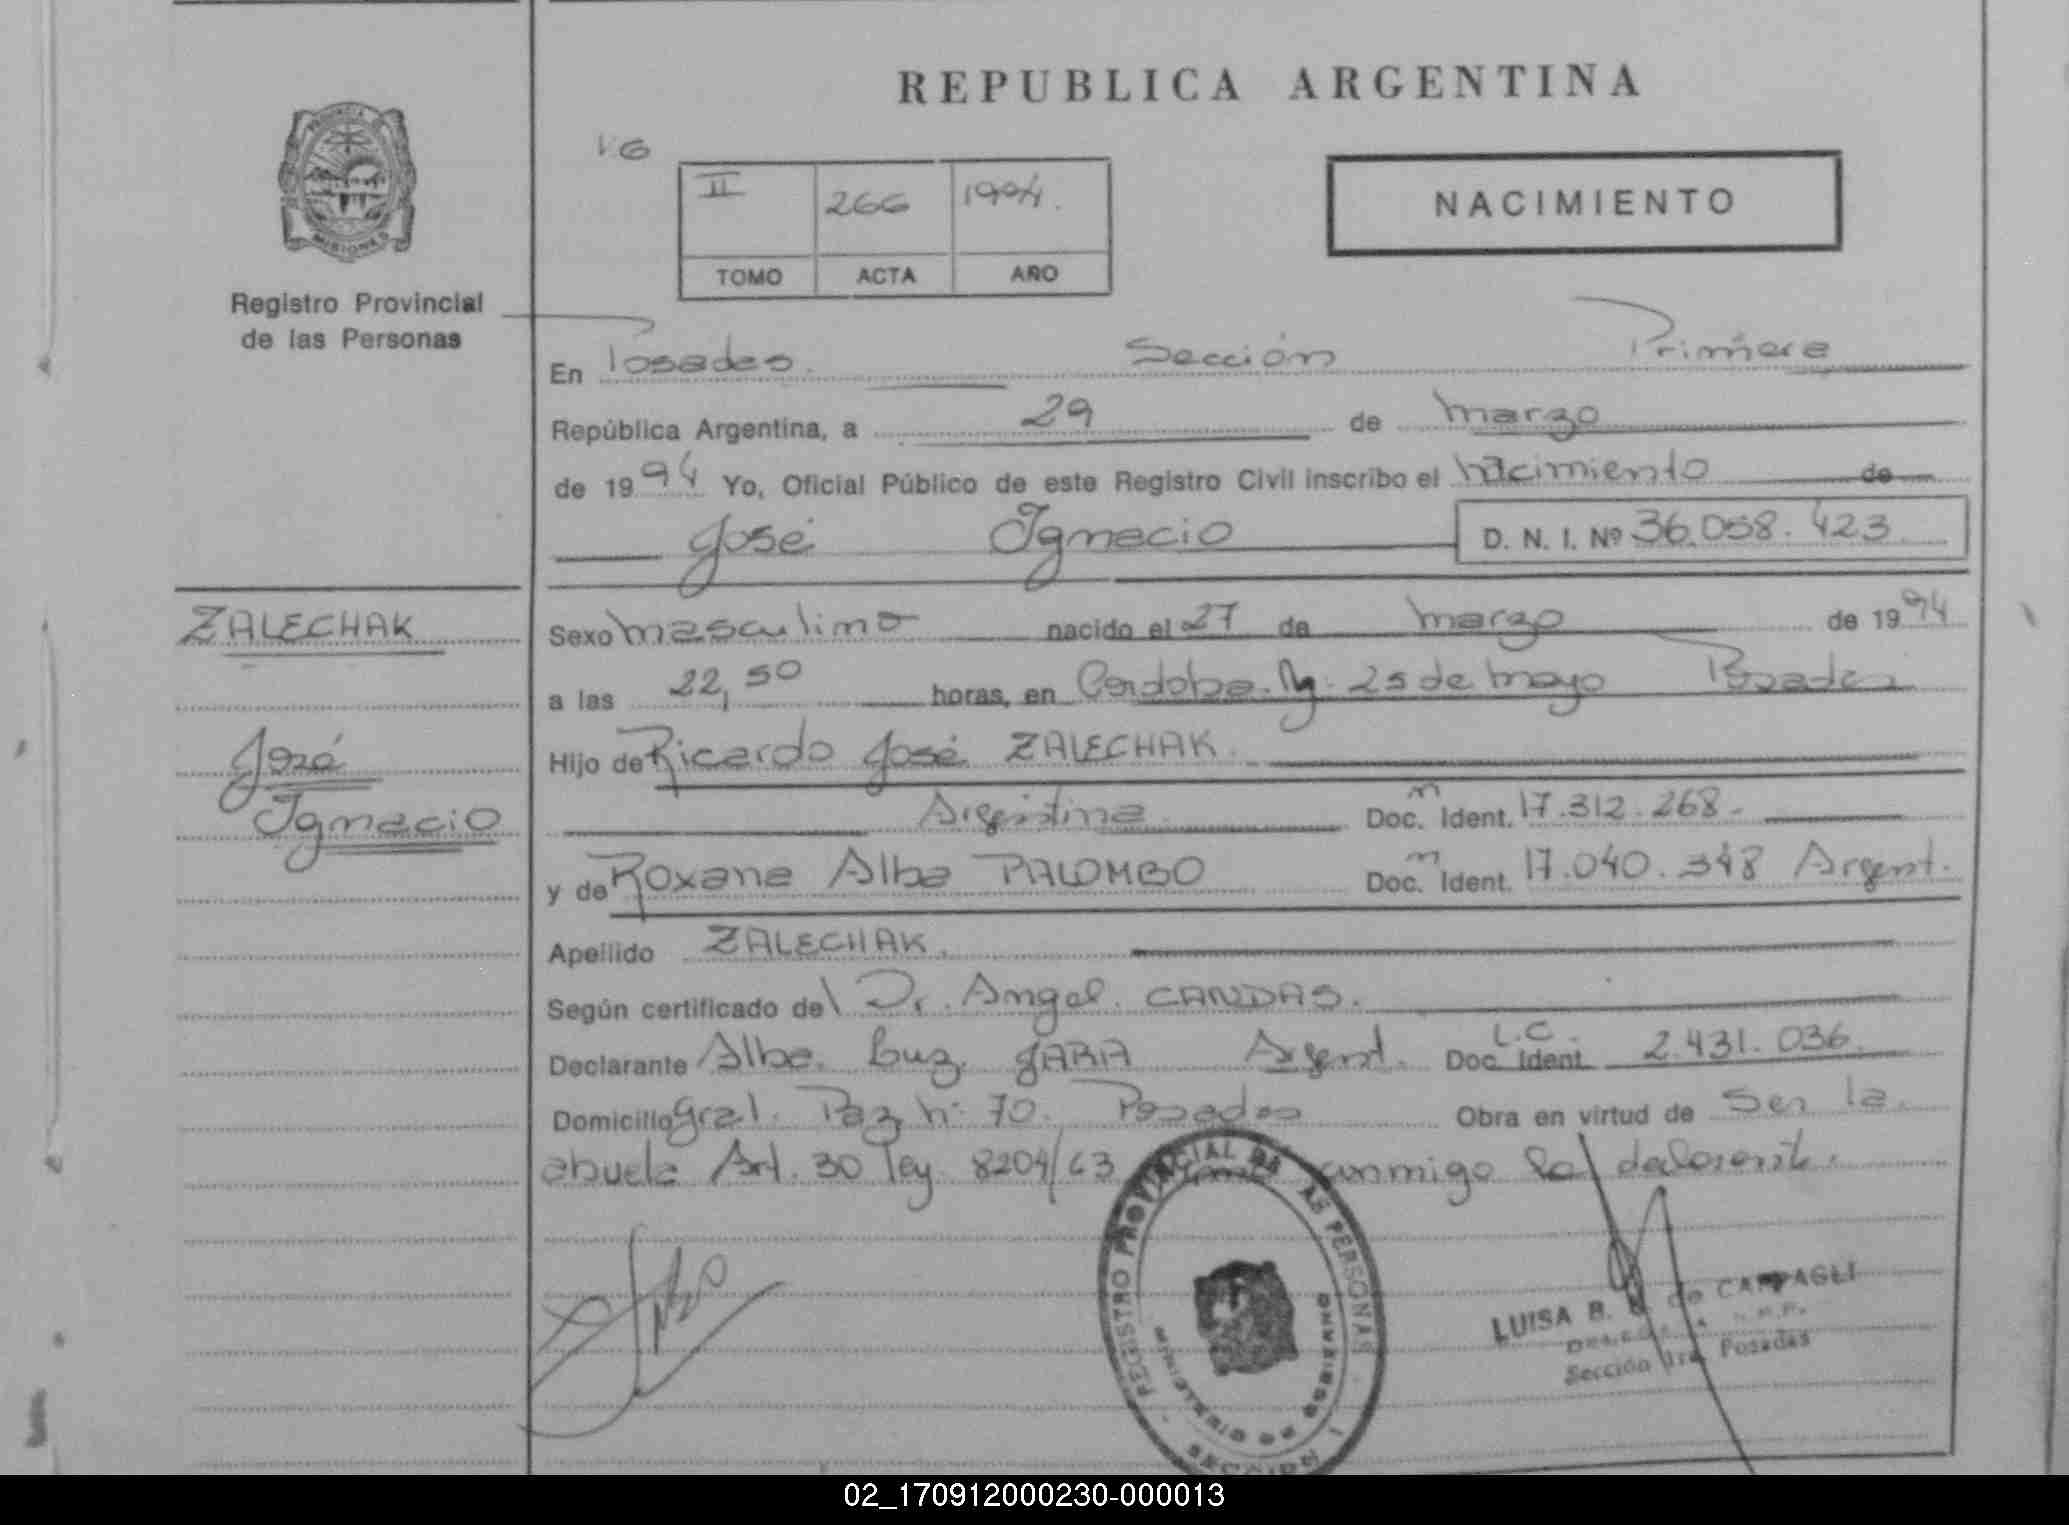 REPUBLICA ARGENTINA
PROVINCIA
MISIONES
Registro Provincial
de las Personas
II 266 1994.
TOMO ACTA AÑO
NACIMIENTO
En Posadas. Sección Primera
República Argentina, a 29 de marzo
de 1994 Yo, Oficial Público de este Registro Civil inscribo el nacimiento de
José Ignacio D. N. I. Nº 36.058.423
ZALECHAK
José
Ignacio
Sexo masculino nacido el 27 de marzo de 1994
a las 22,50 horas, en Cordoba. 25 de mayo Posadas
Hijo de Ricardo José ZALECHAK.
Argentina Doc. n Ident. 17.312.268.
y de Roxana Alba PALOMBO Doc. n Ident. 17.040.348 Argent.
Apellido ZALECHAK.
Según certificado del Dr. Angel CANDAS.
Declarante Alba Luz JARA Argent. L.C. Doc. Ident. 2.431.036.
Domicilio Gral. Paz nº 70. Posadas Obra en virtud de ser la
abuela Art. 30 ley 8204/63 conmigo la
REGISTRO PROVINCIAL DE LAS PERSONAS
SECCION
LUISA B. de CAMPAGLI
Sección 1ra Posadas
02_170912000230-000013